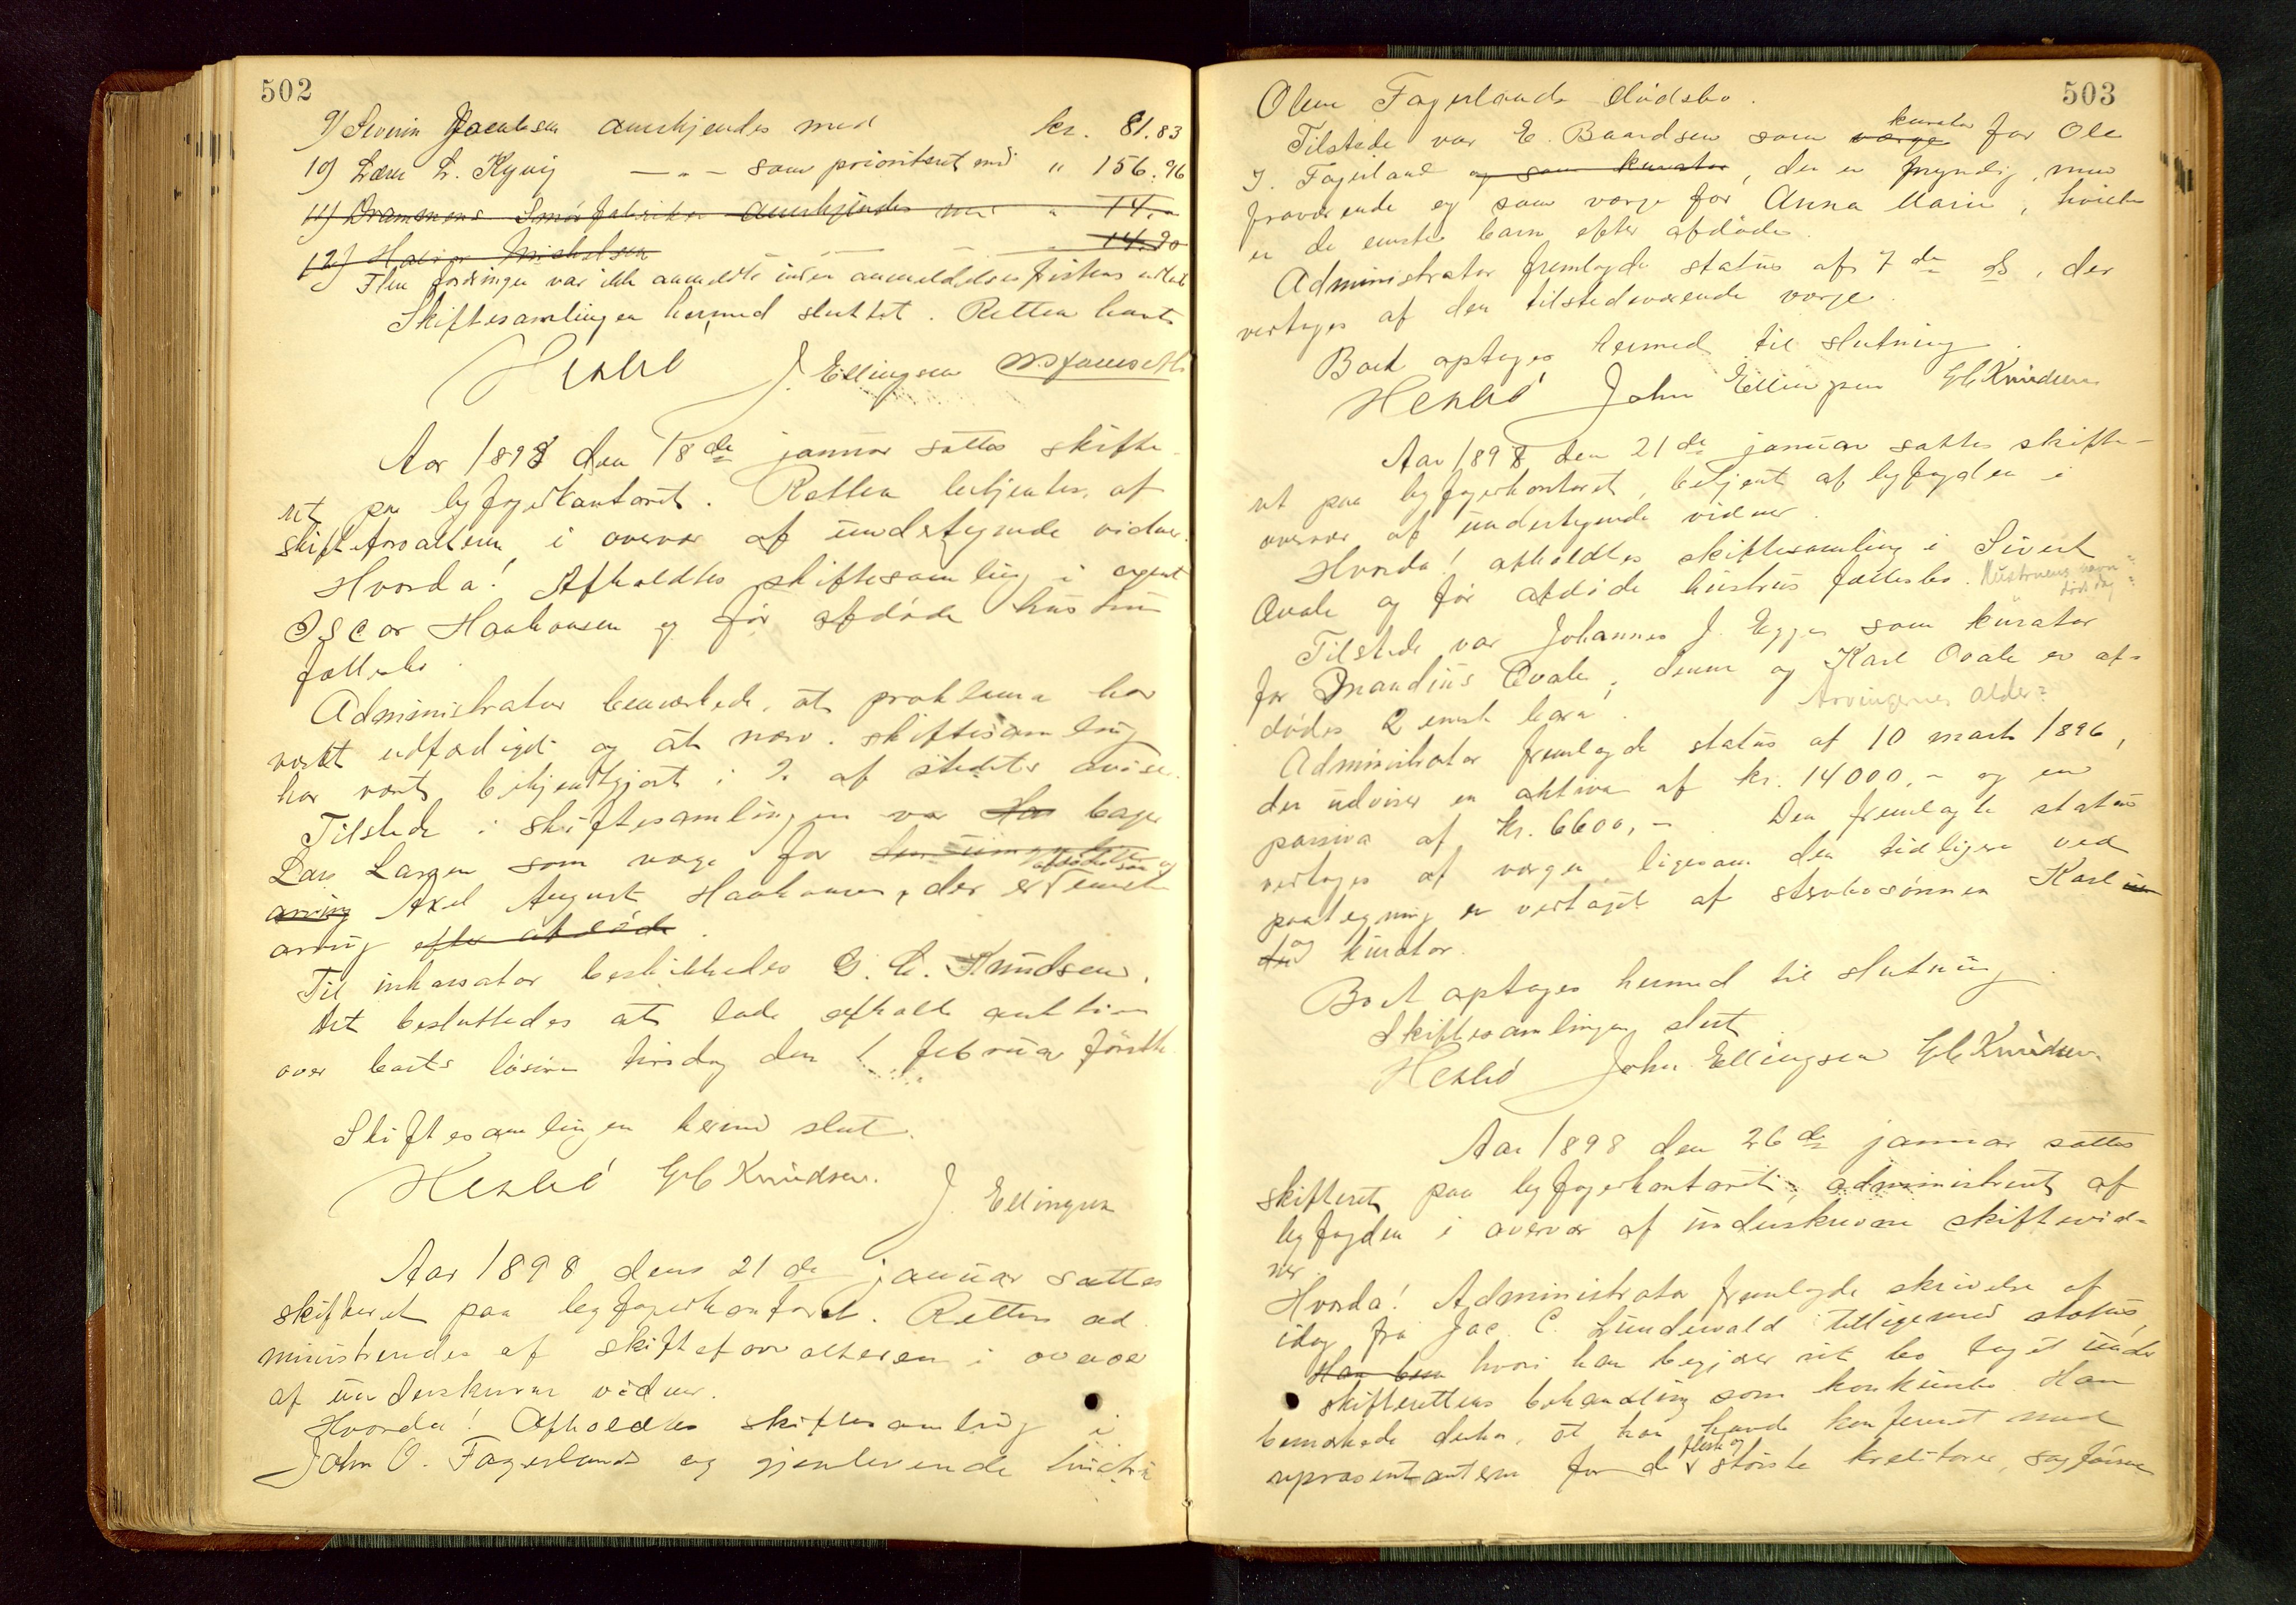 502
9) Severin Jacobsen anerkjendes med kr. 81.83
10) Lærer L. Kyvig — " — som prioritert med " 156.96
11) Drammens Smørfabriker anerkjendes med " 14.-
12) Halvor Michelsen — — " 14.90
Flere fordringer var ikke anmeldte inden anmeldelsesfristens udløb
Skiftesamlingen hermed sluttet. Retten hævet
J. Ellingsen
Aar 1898 den 18de januar sattes skifte-
ret paa byfogedkontoret. Retten betjentes af
skifteforvalteren i overvær af undertegnede vidner.
Hvorda! Afholdtes skiftesamling i agent
Oscar Haakonsen og før afdøde hustru
fællesbo.
Administrator bemærkede, at proklama har
været udfærdiget og at nærv. skiftesamling
har været bekjendtgjort i 2 af stedets aviser.
Tilstede i skiftesamlingen var Han bager
Lars Larsen som værge for den umyndige
arving Axel August Haakonsen, der er afdødes søn og eneste
arving efter afdøde.
Til inkassator beskikkedes G. C. Knudsen.
Det besluttedes at lade afholde auktion
over boets løsøre tirsdag den 1 februar førstk.
Skiftesamlingen hermed slut.
G C Knudsen.
J. Ellingsen
Aar 1898 den 21de januar sattes
skifteret paa byfogerkontoret. Retten ad-
ministreredes af skifteforvalteren i overvær
af underskrevne vidner.
Hvorda! Afholdtes skiftesamling i
John O. Fagerlands og gjenlevende hustru
503
Olene Fagerlands dødsbo.
Tilstede var E. Baardsen som værge kurator for Ole
J. Fagerland og som kurator, der er myndig, men
fraværende og som værge for Anna Marie, hvilke
er de eneste barn efter afdøde.
Administrator fremlagde status af 7de ds, der
vedtages af den tilstedeværende værge.
Boet optages hermed til slutning.
John Ellingsen G C Knudsen
Aar 1898 den 21de januar sattes skifte-
ret paa byfogerkontoret, betjent af byfogden i
overvær af undertegnede vidner.
Hvorda! afholdtes skiftesamling i Sivert
Qvale og før afdøde hustrus fællesbo. Hustruens navn =
dødsdag =
Tilstede var Johannes J. Egges som kurator
for Brandius Qvale; denne og Karl Qvale er af-
dødes 2 eneste barn. Arvingernes alder =
Administrator fremlagde status af 10 marts 1896,
der udviser en aktiva af kr. 14000,- og en
passiva af kr. 6600,-. Den fremlagte status
vedtages af værgen, ligesom den tidligere ved
paategning er vedtaget af stervbosønnen Karl
og kurator.
Boet optages hermed til slutning.
Skiftesamlingen slut.
John Ellingsen G C Knudsen.
Aar 1898 den 26de januar sattes
skifteret paa byfogerkontoret, administreret af
byfogden i overvær af underskrevne skiftevid-
ner.
Hvorda! Administrator fremlagde skrivelse af
idag fra Jac. C. Lundewald tilligemed status,
Han bem hvori han begjærer sit bo taget under
skifterettens behandling som konkursbo. Han
bemærkede derhos, at han havde konfereret med
repræsentanterne for de fleste og største kreditorer, sagfører